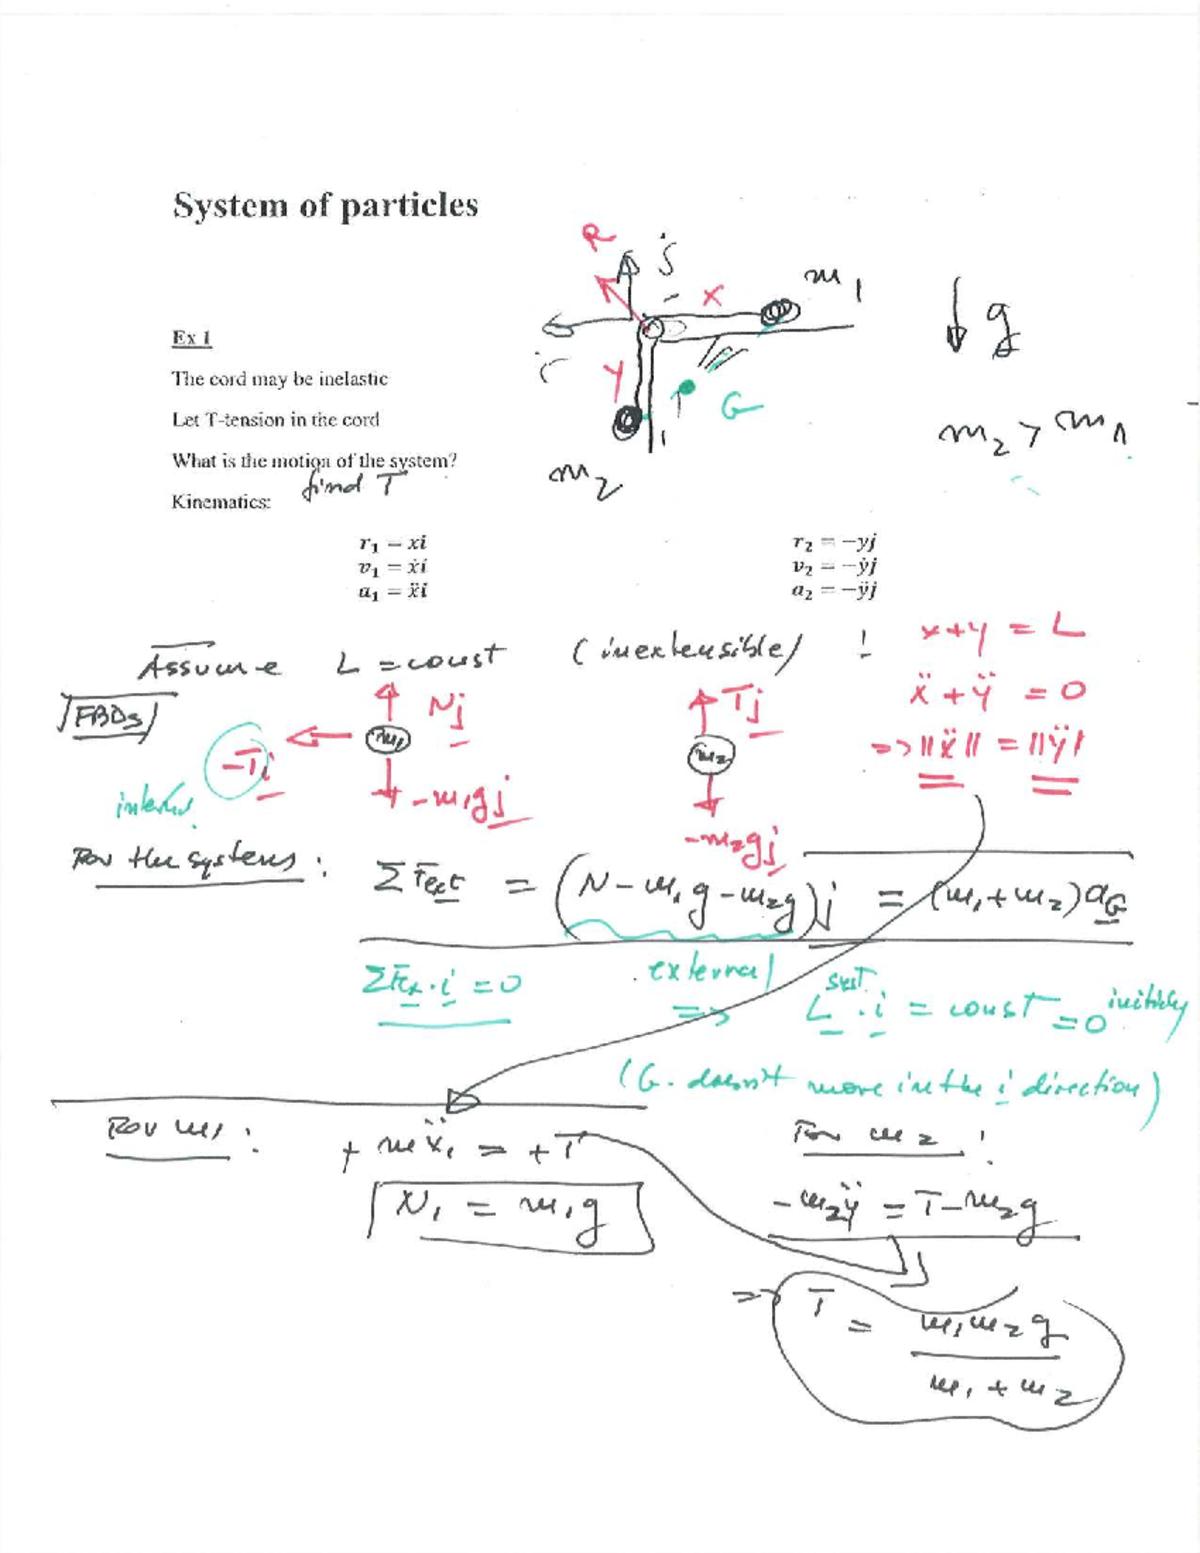 System of particles
R
j
x
m1
i
y
G
g
m2
m2 > m1
Ex 1
The cord may be inelastic
Let T-tension in the cord
What is the motion of the system?
find T
Kinematics:
r₁ = xi
v₁ = ẋi
a₁ = ẍi
r₂ = −yj
v₂ = −ẏj
a₂ = −ÿj
Assume L = const (inextensible) !
x+y = L
ẍ + ÿ = 0
=> ||ẍ|| = ||ÿ||
FBDs
Nj
m1
-Ti
-m1gj
Tj
m2
-m2gj
For the system:
ΣFext = (N - m1g - m2g)j = (m1+m2)aG
ΣFex · i = 0
external
=>
L syst. · i = const = 0 initially
(G. doesn't move in the i direction)
For m1:
+ mẍ1 = +T
N1 = m1g
For m2 !
-m2ÿ = T - m2g
=> T = m1m2g
m1 + m2